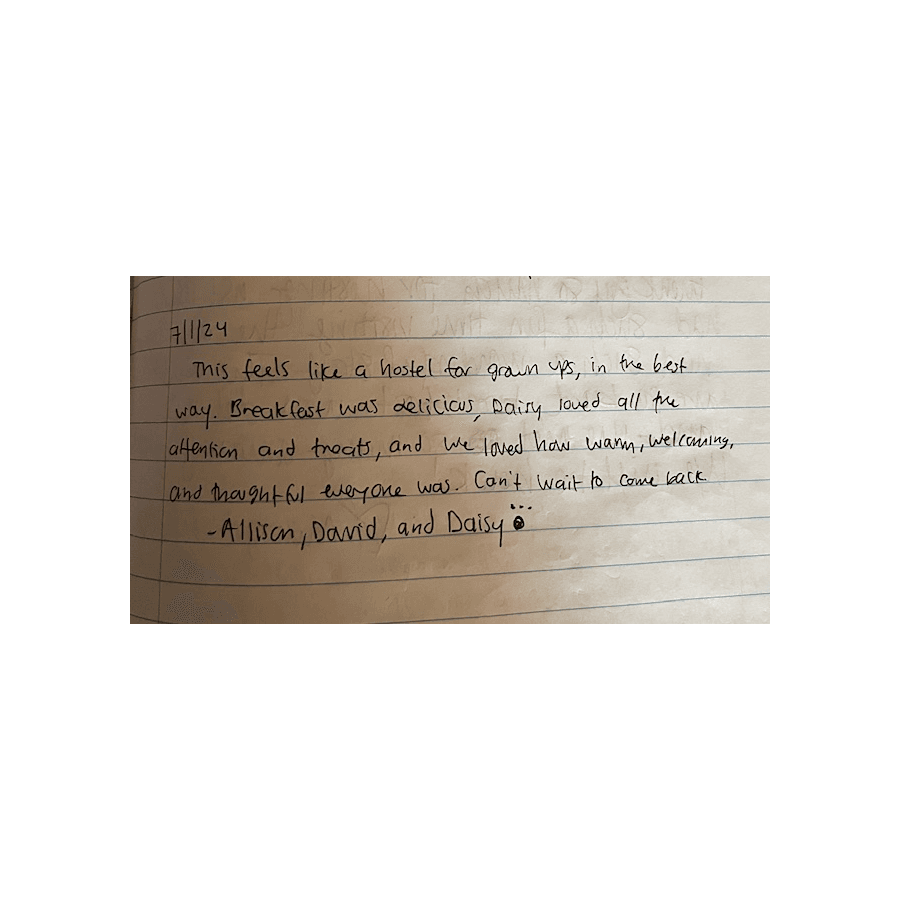 7/1/24
This feels like a hostel for grown ups, in the best
way. Breakfast was delicious, Daisy loved all the
attention and treats, and we loved how warm, welcoming,
and thoughtful everyone was. Can't wait to come back
-Allison, David, and Daisy